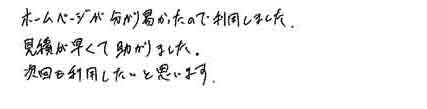 ホームページが分かり易かったので利用しました.
見積が早くて助かりました.
次回も利用したいと思います.